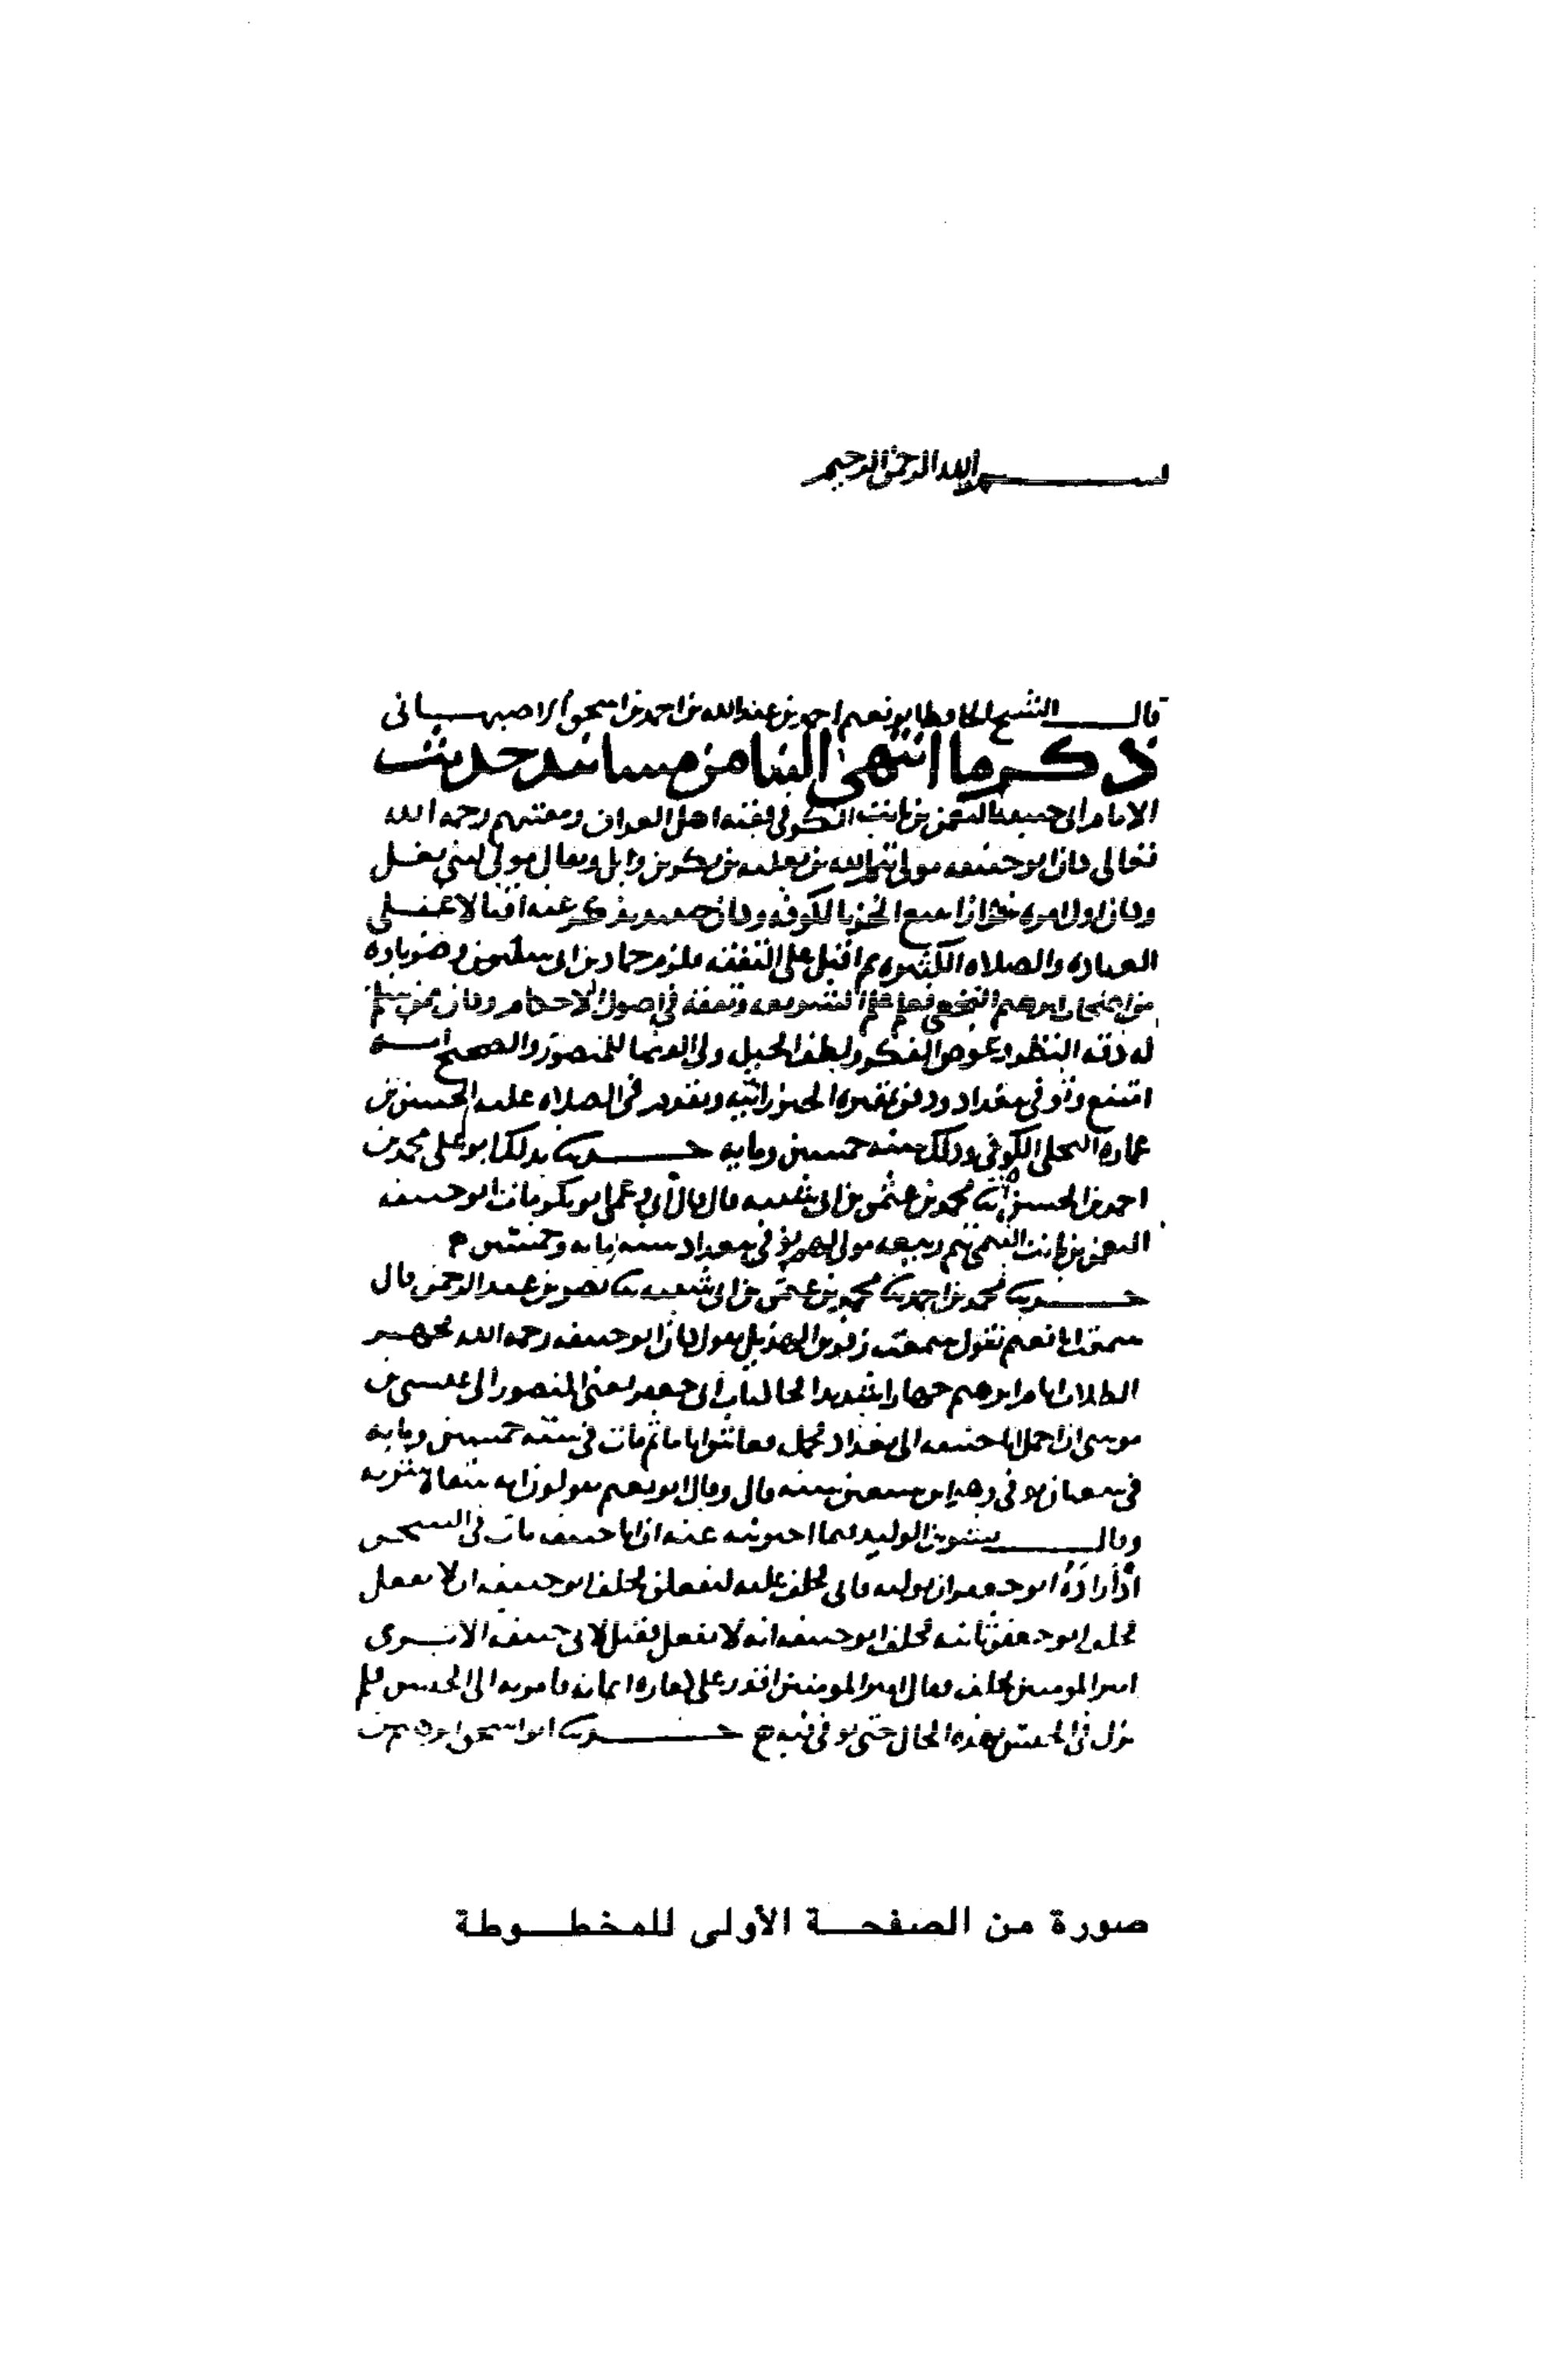 بسم الله الرحمن الرحيم
قال الشيخ الحافظ ابو نعيم احمد بن عبد الله بن احمد بن اسحق الاصبهاني
ذكر ما انتهى الينا من مسانيد حديث
الامام ابي حنيفة النعمن بن ثابت الكوفي فقيه اهل العراق ومفتيهم رحمه الله
تعالى كان ابو حنيفه مولى تيم الله بن ثعلبه بن بكر بن وايل ويقال مولى لبني
وكان اول امره خزازا يبيع الخز بالكوفه وكان يذكر عنه
العباده والصلاه الكثيره ثم اقبل على التفقه فلزم حماد بن ابي سليمن
من اصحاب ابرهيم النخعي الشريعه وتفقه في اصول الاحكام وكان
له دقه النظر وغوص الفكر ولطف الحيل ولي القضا للمنصور والصحيح انه
امتنع وتوفي ببغداد ودفن بمقبره الخيزرانيه وتقدم في الصلاه عليه الحسن بن
عماره البجلي الكوفي وذلك سنه خمسين ومايه حدثنا بذلك ابو علي محمد بن
احمد بن الحسن ثنا محمد بن عثمن بن ابي شيبه قال قال ابي وعمي ابو بكر مات ابو حنيفه
النعمن بن ثابت التيمي تيم ربيعه مولى لهم توفي ببغداد سنه مايه وخمسين
حدثنا محمد بن احمد ثنا محمد بن عثمن بن ابي شيبه ثنا نصر بن عبد الرحمن قال
سمعت ابا نعيم يقول سمعت زفر بن الهذيل يقول كان ابو حنيفه رحمه الله يجهر
الكلام ايام ابرهيم جهارا شديدا ابي جعفر يعني المنصور الى عيسى بن
موسى ان احمل ابا حنيفه الى بغداد فحمل فعاش اياما ثم مات في سنه خمسين ومايه
في توفي وهو ابن سبعين سنه قال وقال ابو نعيم مولد ابي حنيفه سنه
وقال بشر بن الوليد فيما اخبرنيه عنه ان ابا حنيفه مات في السجن
اذ اراده ابو جعفر ان يوليه فابى فحلف عليه ليفعلن فحلف ابو حنيفه ان لا يفعل
فحلف ابو جعفر ثانيه فحلف ابو حنيفه انه لا يفعل فقيل لابي حنيفه الا ترى
امير المومنين يحلف فقال امير المومنين اقدر على كفاره ايمانه فامر به الى الحبس فلم
يزل في الحبس بهذه الحال حتى توفي فيه حدثنا ابو اسحق ابرهيم بن
صورة من الصفحة الأولى للمخطوطة